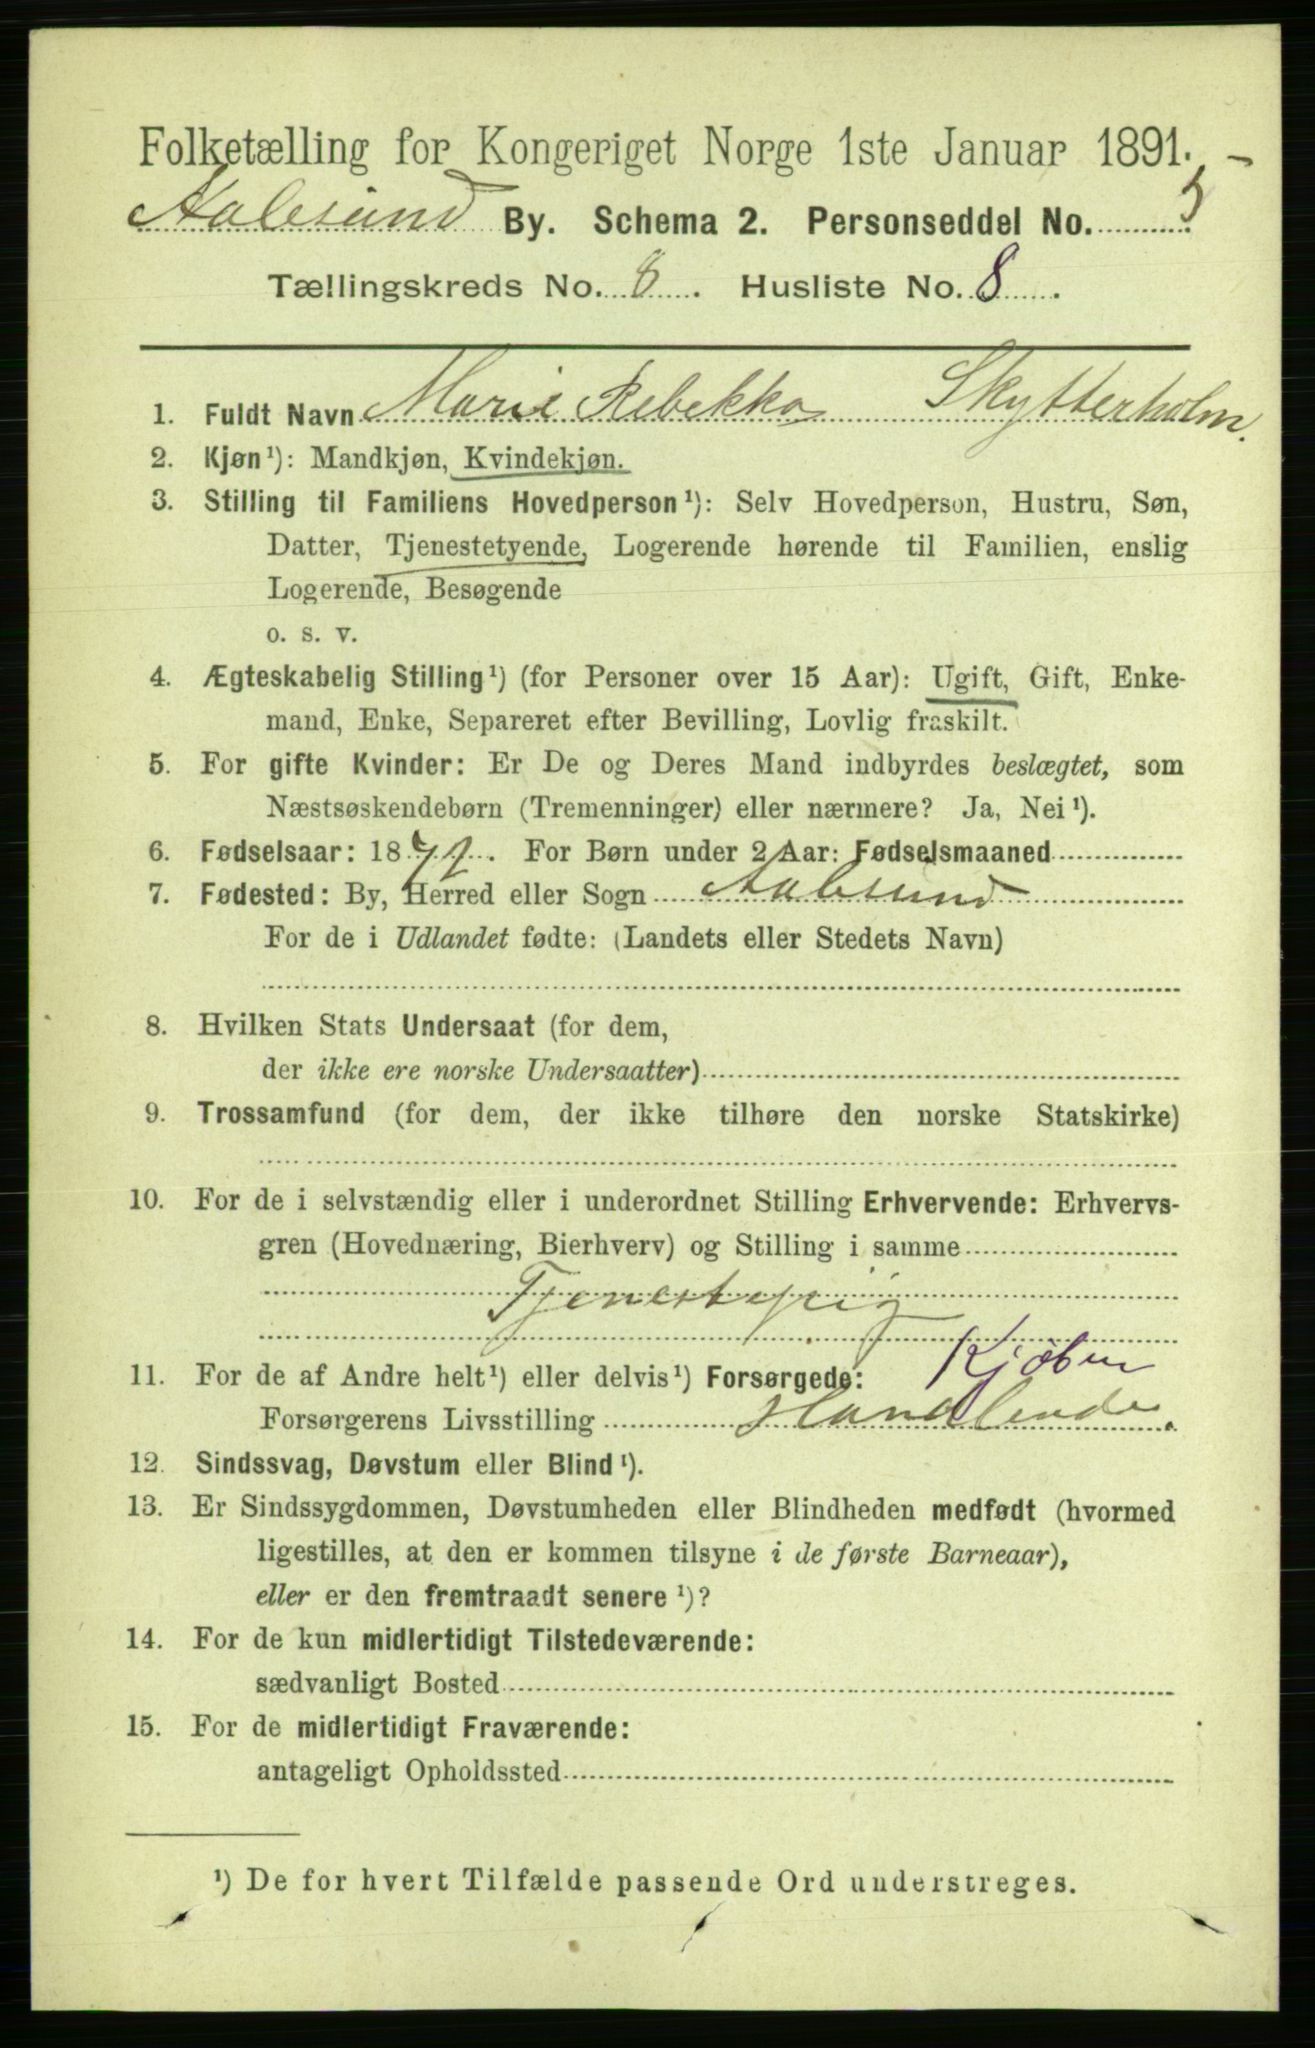 Folketælling for Kongeriget Norge 1ste Januar 1891.
Aalesund By. Schema 2. Personseddel No. 5
Tællingskreds No. 8. Husliste No. 8.
1. Fuldt Navn Marie Rebekka Skytterholm.
2. Kjøn¹): Mandkjøn, Kvindekjøn.
3. Stilling til Familiens Hovedperson¹): Selv Hovedperson, Hustru, Søn,
Datter, Tjenestetyende, Logerende hørende til Familien, enslig
Logerende, Besøgende
o. s. v.
4. Ægteskabelig Stilling¹) (for Personer over 15 Aar): Ugift, Gift, Enke-
mand, Enke, Separeret efter Bevilling, Lovlig fraskilt.
5. For gifte Kvinder: Er De og Deres Mand indbyrdes beslægtet, som
Næstsøskendebørn (Tremenninger) eller nærmere? Ja, Nei¹).
6. Fødselsaar: 1872. For Børn under 2 Aar: Fødselsmaaned
7. Fødested: By, Herred eller Sogn Aalesund
For de i Udlandet fødte: (Landets eller Stedets Navn)
8. Hvilken Stats Undersaat (for dem,
der ikke ere norske Undersaatter)
9. Trossamfund (for dem, der ikke tilhøre den norske Statskirke)
10. For de i selvstændig eller i underordnet Stilling Erhvervende: Erhvervs-
gren (Hovednæring, Bierhverv) og Stilling i samme
Tjenestepig
11. For de af Andre helt¹) eller delvis¹) Forsørgede: Kjøbm
Forsørgerens Livsstilling Handlende.
12. Sindssvag, Døvstum eller Blind¹).
13. Er Sindssygdommen, Døvstumheden eller Blindheden medfødt (hvormed
ligestilles, at den er kommen tilsyne i de første Barneaar),
eller er den fremtraadt senere¹)?
14. For de kun midlertidigt Tilstedeværende:
sædvanligt Bosted
15. For de midlertidigt Fraværende:
antageligt Opholdssted
¹) De for hvert Tilfælde passende Ord understreges.